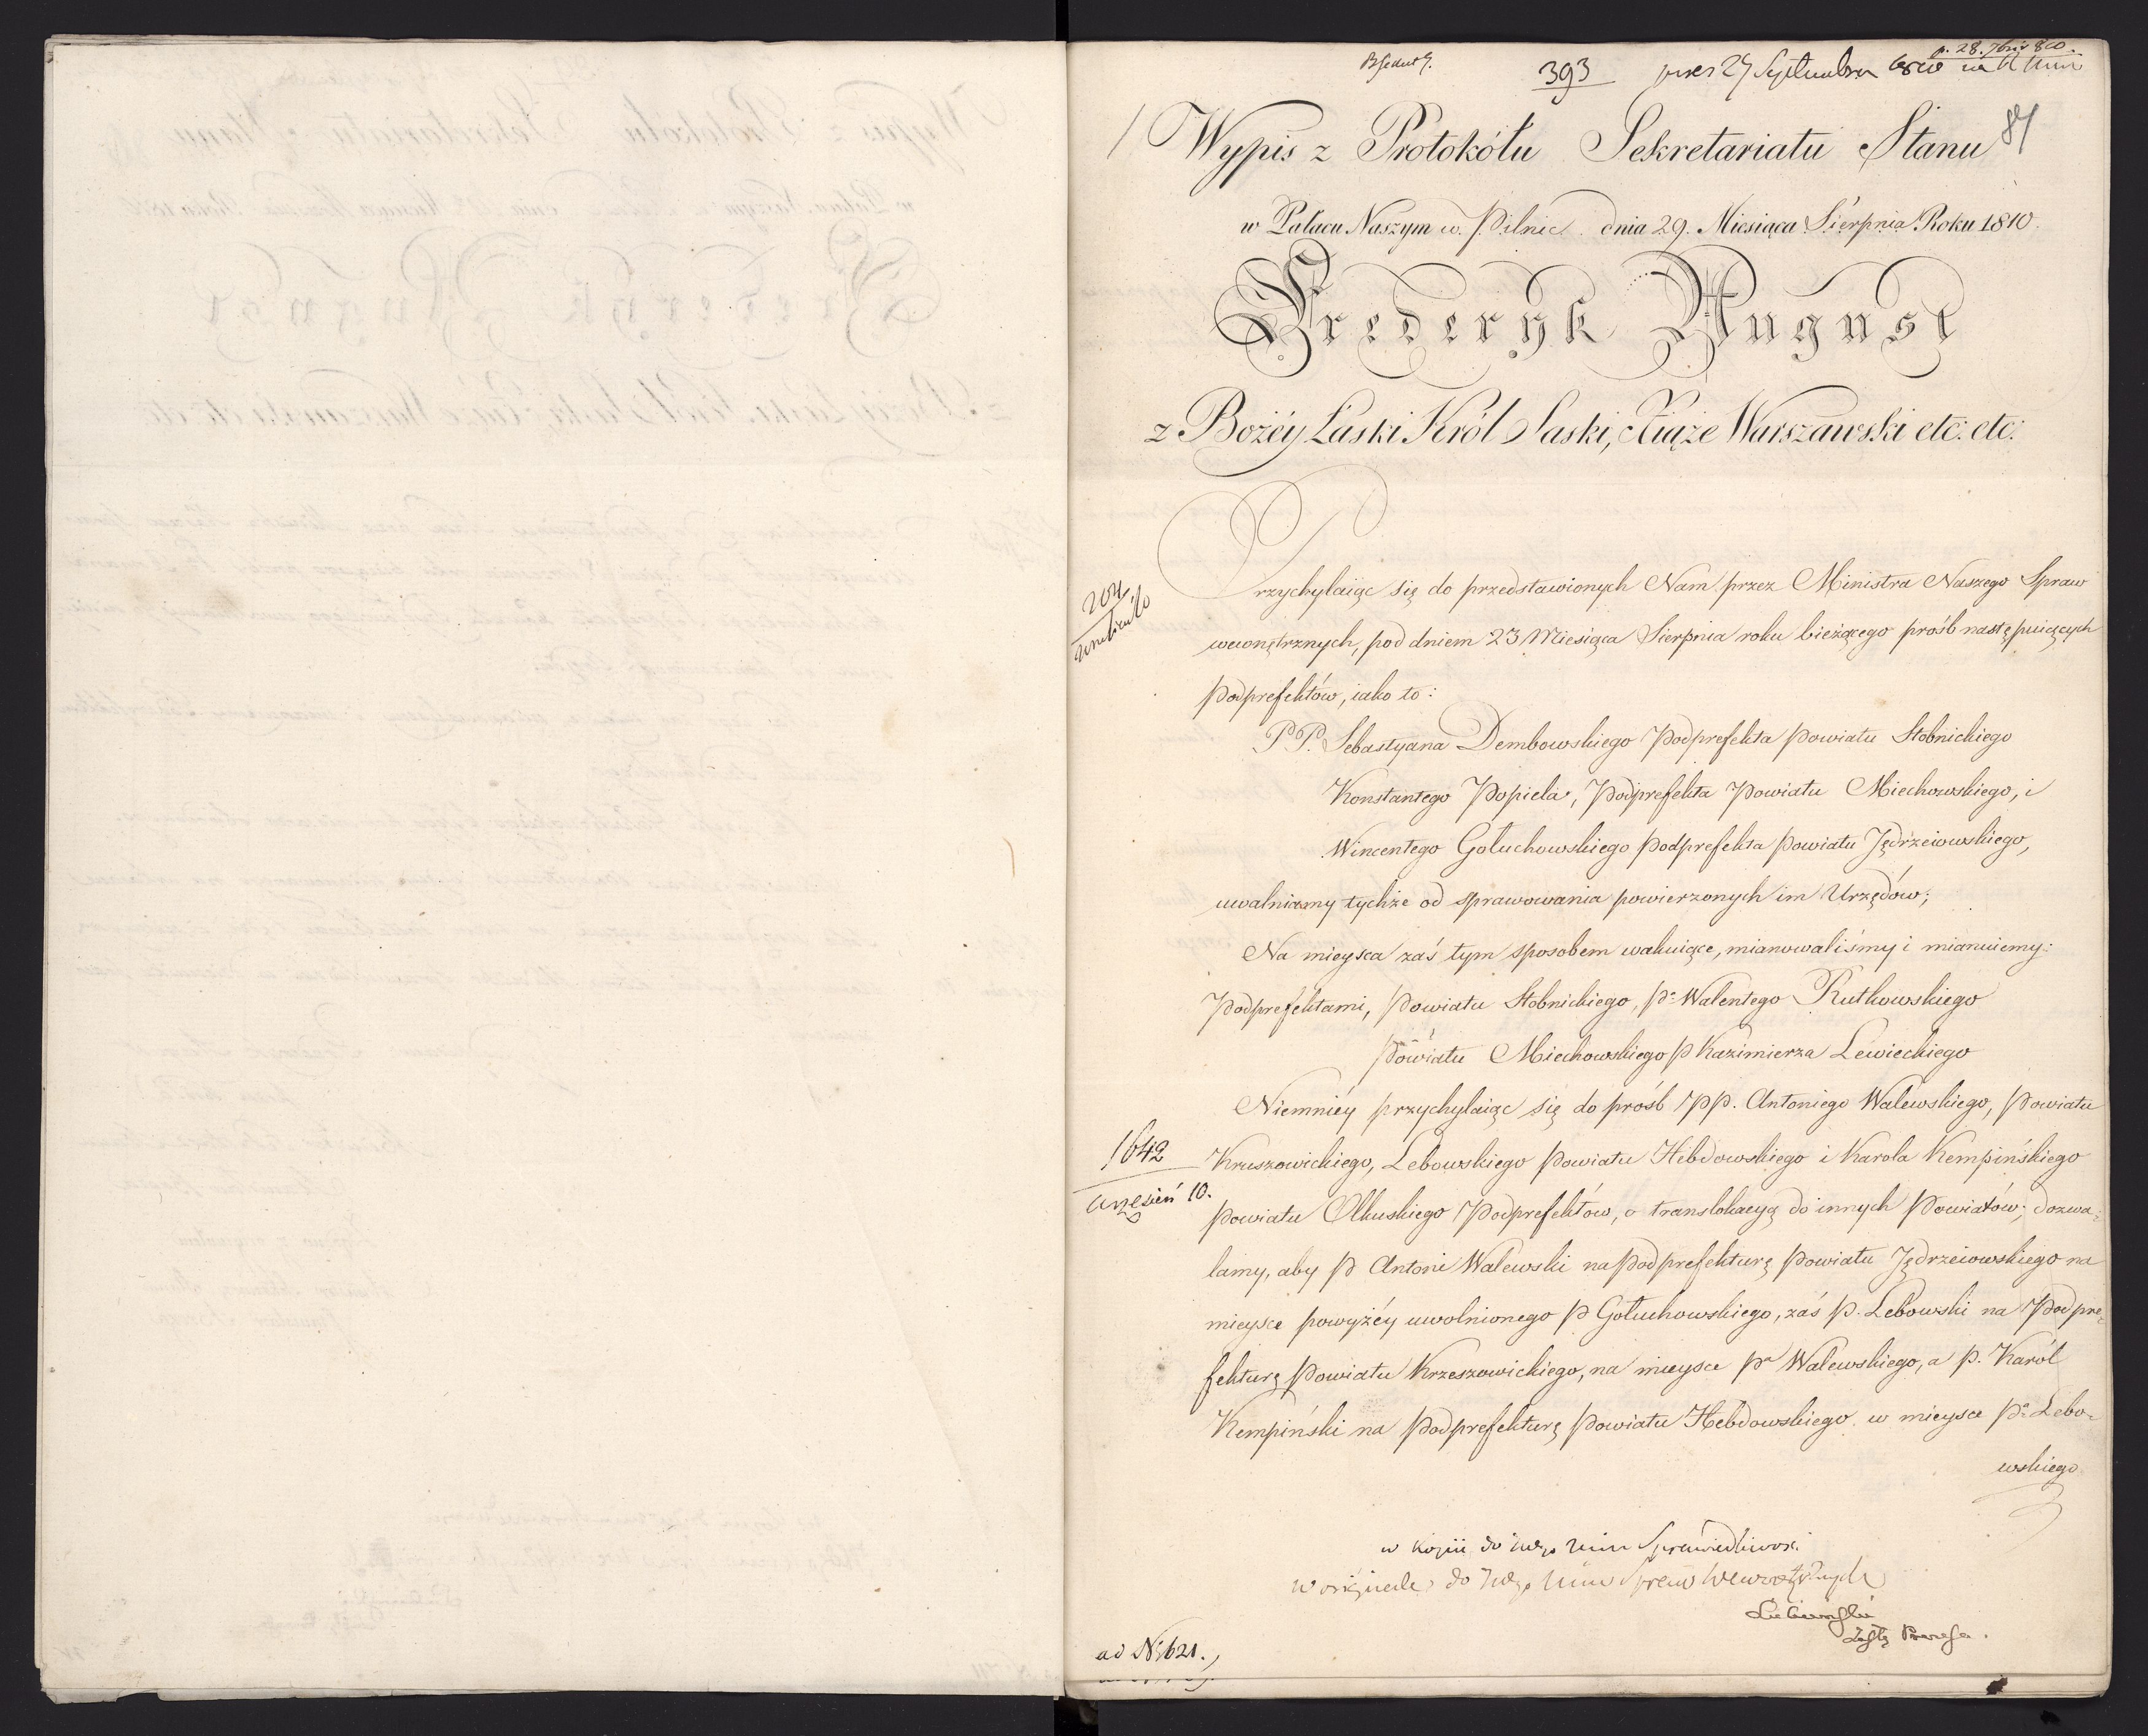 393
p. 28. 7bris 810.
84
Wypis z Protokółu Sekretariatu Stanu
w Pałacu Naszym w Pilnic dnia 29. Miesiąca Sierpnia Roku 1810.
Frederyk August
z Bożéy Łaski Król Saski, Xiąże Warszawski etc. etc.
Przychylaiąc się do przedstawionych Nam przez Ministra Naszego Spraw
204
wewnętrznych, pod dniem 23 Miesiąca Sierpnia roku bieżącego próśb następuiących
Podprefektów, iako to:
PP. Sebastyana Dembowskiego Podprefekta Powiatu Stobnickiego
Konstantego Popiela, Podprefekta Powiatu Miechowskiego, i
Wincentego Gołuchowskiego Podprefekta Powiatu Jędrzeiowskiego,
uwalniamy tychże od sprawowania powierzonych im Urzędów;
Na mieysca zaś tym sposobem wakuiące, mianowaliśmy i mianuiemy:
Podprefektami, Powiatu Stobnickiego, Pa Walentego Rutkowskiego
Powiatu Miechowskiego P Kazimierza Lewieckiego
Niemniéy przychylaiąc się do próśb PP. Antoniego Walewskiego, Powiatu
1642
Kruszowickiego, Lebowskiego Powiatu Hebdowskiego i Karola Kempińskiego
Wrzesień 10.
Powiatu Olkuskiego Podprefektów, o translokacyą do innych Powiatów; dozwa-
lamy, aby P Antoni Walewski na Podprefekturę Powiatu Jędrzeiowskiego na
mieysce powyżéy uwolnionego P Gołuchowskiego, zaś P. Lebowski na Podpre-
fekturę Powiatu Krzeszowickiego, na mieysce Pa Walewskiego, a P. Karól
Kempiński na Podprefekturę Powiatu Hebdowskiego w mieysce Pa Lebo-
wskiego
w kopii do Min Sprawiedliwosci
w originale do Min Spraw Wewnętrznych
ad N: 621.